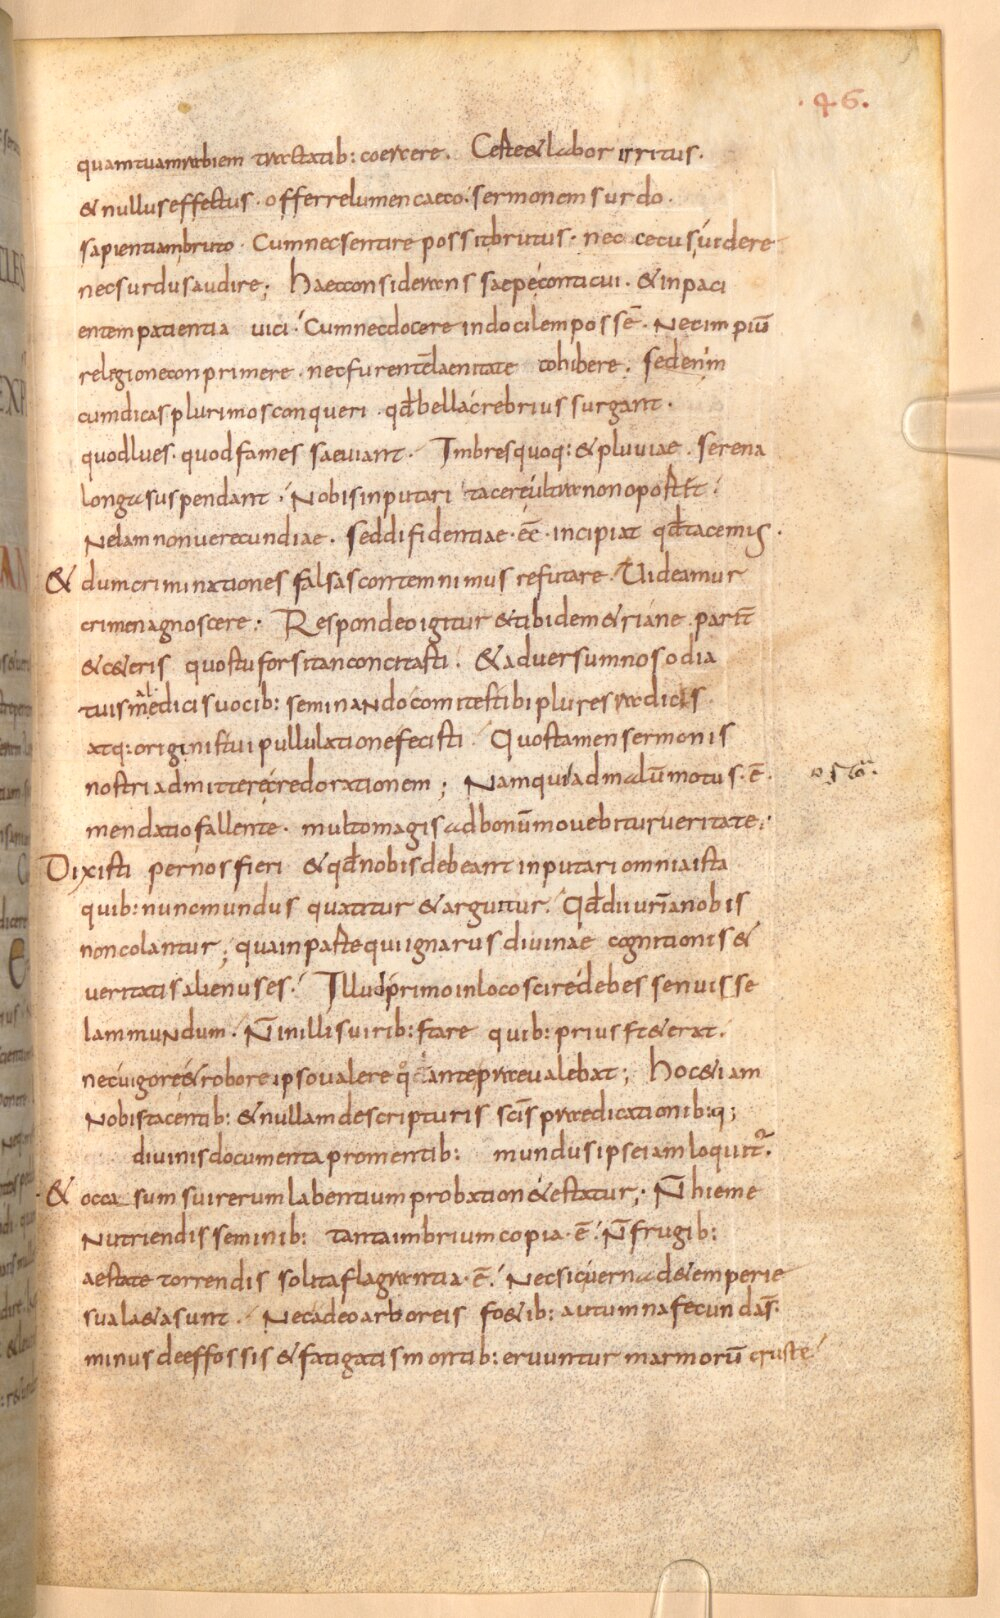 .46.
quam tuam rabiem tractatib: coercere. Certe & labor irritus.
& nullus effectus. offerre lumen caeco. sermonem surdo.
sapientiam bruto. Cum nec sentire possit brutus. nec cecus uidere
nec surdus audire; Haec considerans saepe conticui. & inpaci
entem patientia uici. Cum nec docere indocilem possē. Nec impiū
relegione conprimere. nec furentē laenitate cohibere. sed enim
cum dicas plurimos conqueri. qđ bella crebrius surgant.
quod lues. quod fames saeuiant. Imbres quoq: & pluuiae. serena
longa suspendant. Nobis inputari tacere ultra non oportet.
Ne iam non uerecundiae. sed difidentiae. eē. incipiat qđ tacemus.
& dum criminationes falsas contemnimus refutare. Uideamur
crimen agnoscere. Respondeo igitur & tibi demetriane. parit̄
& ceteris quos tu forsitan concitasti. & aduersum nos odia
tuis maledicis uocib: seminando comites tibi plures radicis
atq: originis tui pullulatione fecisti. Quos tamen sermonis
nostri admittere credo rationem; Nam qui ad malū motus. ē.
mendatio fallente. multo magis ad bonū mouebitur ueritate.
Dixisti per nos fieri & qđ nobis debeant inputari omnia ista
quib: nunc mundus quatitur & arguitur. Qđ dii ur̄i a nobis
non colantur; qua in parte qui ignarus diuinae cognitionis &
ueritatis alienus es. Illud primo in loco scire debes senuisse
iam mundum. N̄ in illis uirib: stare quib: prius steterat.
nec uigore & robore ipso ualere q° ante praeualebat; Hoc etiam
Nobis tacentib: & nullam de scripturis scīs praedicationib: q;
diuinis documenta promentib: mundus ipse iam loquitr̄.
& occasum sui rerum labentium probatione testatur; N̄ hieme
Nutriendis seminib: tanta imbrium copia. ē. N̄ frugib:
aestate torrendis solita flagrantia. ē. Nec sic uerna de temperie
sua laeta sunt. Nec adeo arboreis fetib: autumna fecunda s̄.
minus de effossis & fatigatis montib: eruuntur marmorū cruste